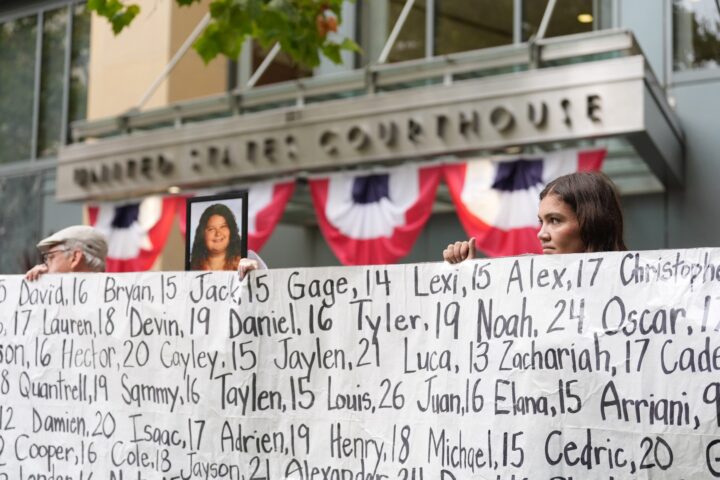 UNITED STATES COURTHOUSE
David,16 Bryan,15 Jack,15 Gage,14 Lexi,15 Alex,17 Christophe
17 Lauren,18 Devin,19 Daniel,16 Tyler,19 Noah,24 Oscar,
son,16 Hector,20 Cayley,15 Jaylen,21 Luca,13 Zachariah,17 Cade
8 Quantrell,19 Sammy,16 Taylen,15 Louis,26 Juan,16 Elana,15 Arriani,9
12 Damien,20 Isaac,17 Adrien,19 Henry,18 Michael,15 Cedric,20
Cooper,16 Cole,18 Jayson,21 Alexander,24 David